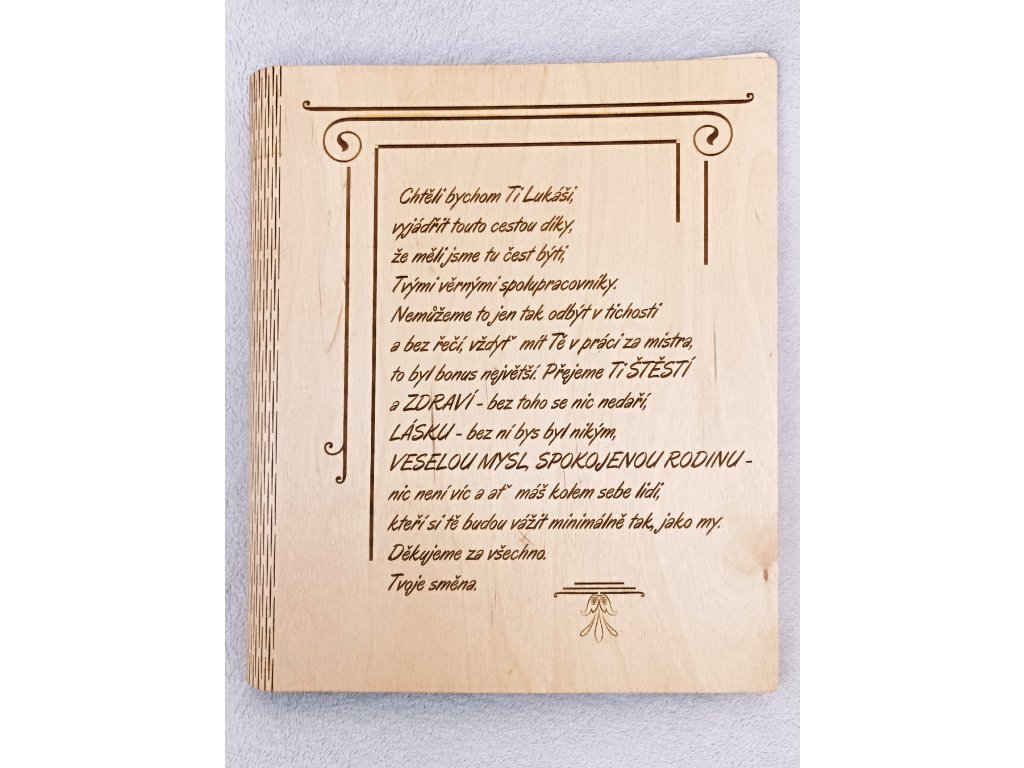 Chtěli bychom Ti Lukáši,
vyjádřit touto cestou díky,
že měli jsme tu čest býti,
Tvými věrnými spolupracovníky.
Nemůžeme to jen tak odbýt v tichosti
a bez řečí, vždyť mít Tě v práci za mistra,
to byl bonus největší. Přejeme Ti ŠTĚSTÍ
a ZDRAVÍ - bez toho se nic nedaří,
LÁSKU - bez ní bys byl nikým,
VESELOU MYSL, SPOKOJENOU RODINU -
nic není víc a ať máš kolem sebe lidi,
kteří si tě budou vážit minimálně tak, jako my.
Děkujeme za všechno.
Tvoje směna.